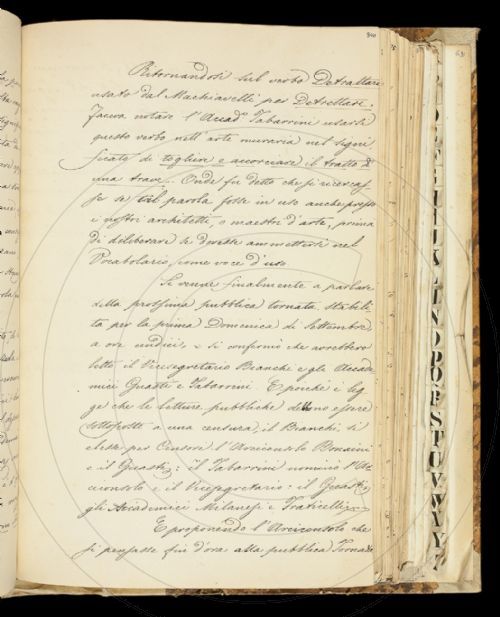 Ritornandosi sul verbo Detrattare
usato dal Machiavelli per Detrettare,
faceva notare l'Accad.º Tabarrini usarsi
questo verbo nell'arte muraria nel signi
ficato di togliere e accorciare il tratto di
una trave. Onde fu detto che si ricercas
se se tal parola fosse in uso anche presso
i nostri architetti, o maestri d'arte, prima
di deliberare se dovesse ammettersi nel
Vocabolario, come voce d'uso.
Si venne finalmente a parlare
della prossima pubblica tornata, stabili
ta per la prima Domenica di Settembre,
a ore undici, e si confermò che avrebbero
letto il Vicesegretario Bianchi e gli Accade
mici Guasti e Tabarrini. E poiché è leg
ge che le letture pubbliche debbono essere
sottoposte a una censura, il Bianchi, si
elesse per Censori l'Arciconsolo Bonaini
e il Guasti; il Tabarrini nominò l'Ar
ciconsolo e il Vicesegretario: il Guasti,
gli Accademici Milanesi e Fraticelli.
E proponendo l'Arciconsolo che
si pensasse fin d'ora alla pubblica Tornata